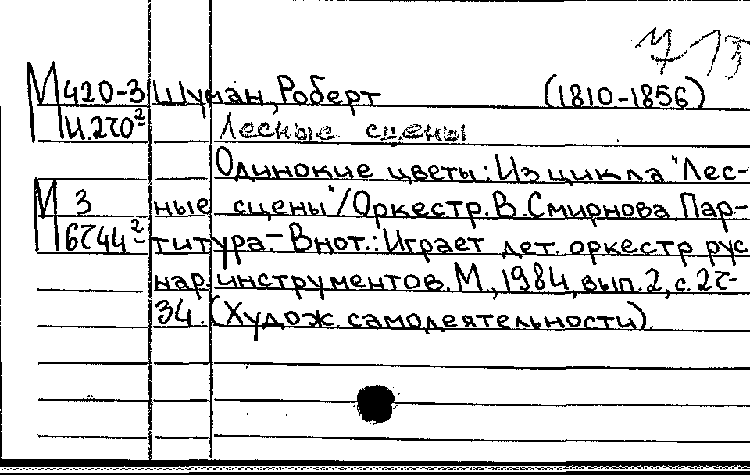 М 420-3 Шуман, Роберт (1810-1856)
Лесные сцены
Одинокие цветы: Из цикла "Лес-
М 3 ные сцены"/Оркестр. В. Смирнова Пар-
титура.- В нот.: Играет дет. оркестр рус
нар. инструментов. М., 1984, вып. 2, с.
34. (Худож. самодеятельности)